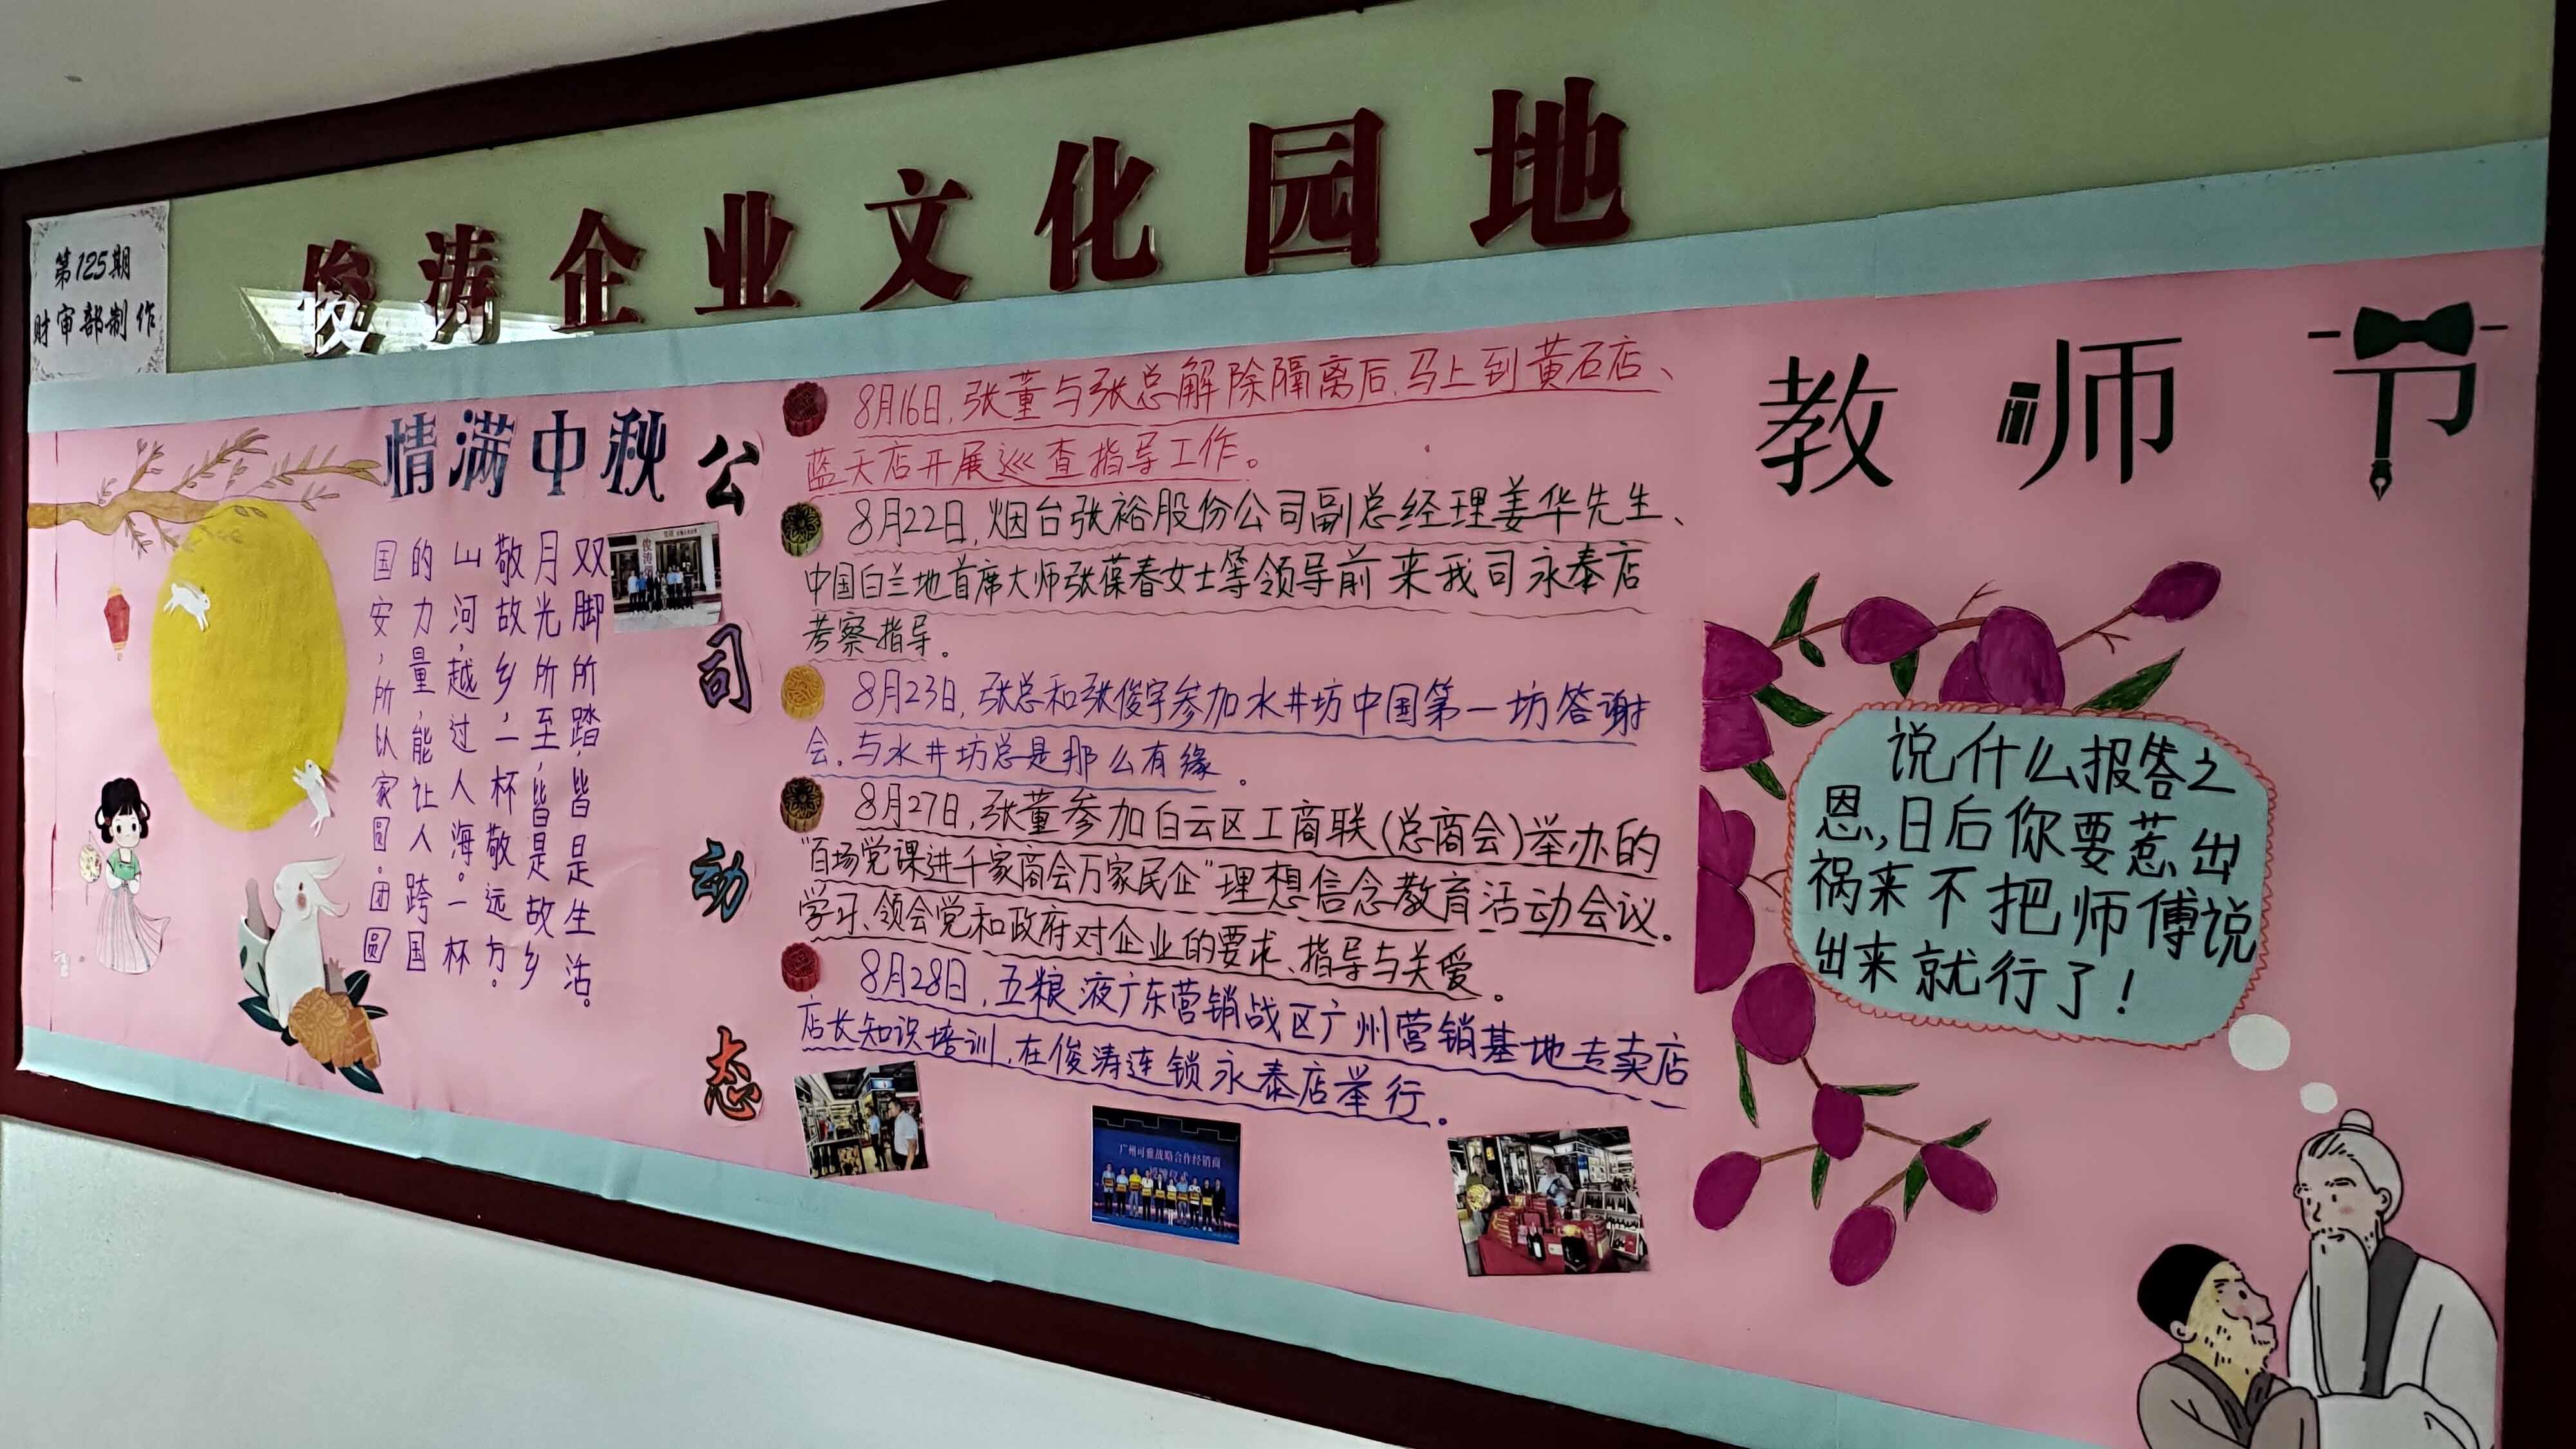 俊涛企业文化园地
第125期
财审部制作
情满中秋
双脚所踏,皆是生活。
月光所至,皆是故乡
敬故乡,一杯敬远方。
山河,越过人海。一杯
的力量,能让人跨国
国安,所以家圆.团圆
公司动态
8月16日,张董与张总解除隔离后,马上到黄石店、
蓝天店开展巡查指导工作。
8月22日,烟台张裕股份公司副总经理姜华先生、
中国白兰地首席大师张葆春女士等领导前来我司永泰店
考察指导。
8月23日,张总和张俊宇参加水井坊中国第一坊答谢
会,与水井坊总是那么有缘。
8月27日,张董参加白云区工商联(总商会)举办的
“百场党课进千家商会万家民企”理想信念教育活动会议。
学习、领会党和政府对企业的要求、指导与关爱。
8月28日,五粮液广东营销战区广州营销基地专卖店
店长知识培训,在俊涛连锁永泰店举行。
广州可雅战略合作经销商
教师节
说什么报答之
恩,日后你要惹出
祸来不把师傅说
出来就行了!